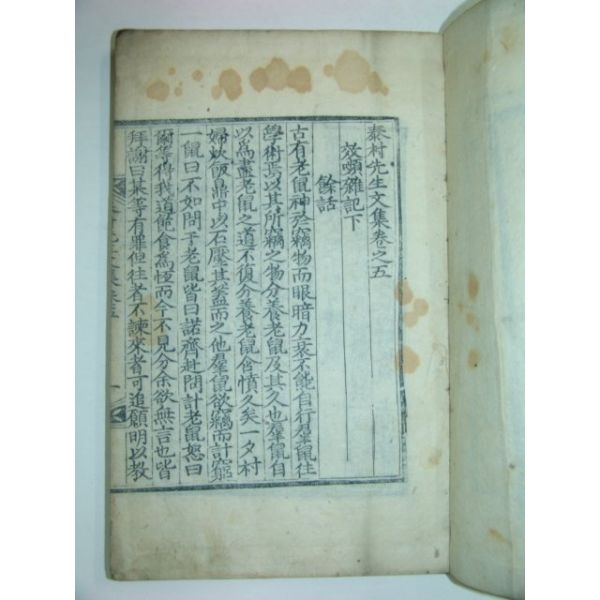 泰村先生文集卷之五
效嚬雜記下
餘話
古有老鼠神於竊物而眼暗力衰不能自行羣鼠往
學術焉以其所竊之物分養老鼠及其久也羣鼠自
以爲盡老鼠之道不復分養老鼠含憤久矣一夕村
婦炊飯鼎中以石壓其盖而之他羣鼠欲竊而計窮
一鼠曰不如問于老鼠皆曰諾齊赴問計老鼠怒曰
爾等得我道飽食爲恒而今不見分余欲無言也皆
拜謝曰某等有罪但往者不諫來者可追願明以教